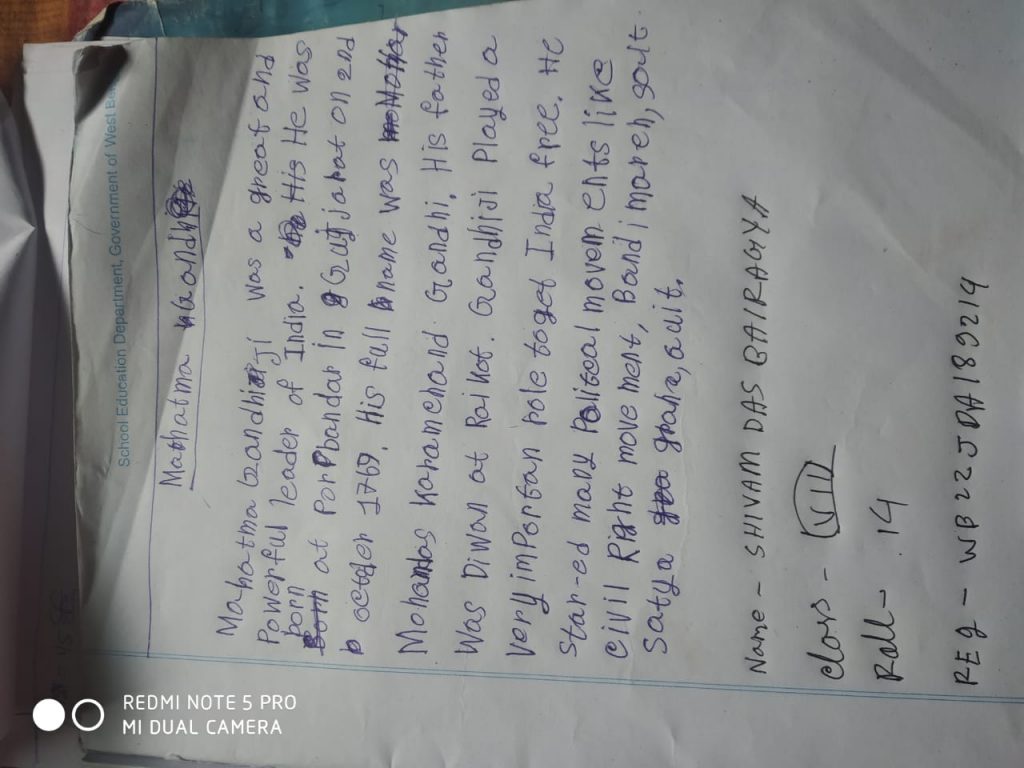 School Education Department, Government of West Be
Mahatma Gandhi
Mahatma Gandhiji was a great and
Powerful leader of India. His He was
born at Porbandar in Gujjarat on 2nd
october 1769. His full name was
Mohandas Karamchand Gandhi. His father
Was Diwan at Raikot. Gandhiji Played a
very importan role to get India free. He
star-ed many Politecal movem ents like
civil Right move ment, Bandi march, salt
Satya graha, a uit.
Name - SHIVAM DAS BAIRAGYA
class - VII
Roll - 14
REg - WB22JDA1839219
REDMI NOTE 5 PRO
MI DUAL CAMERA